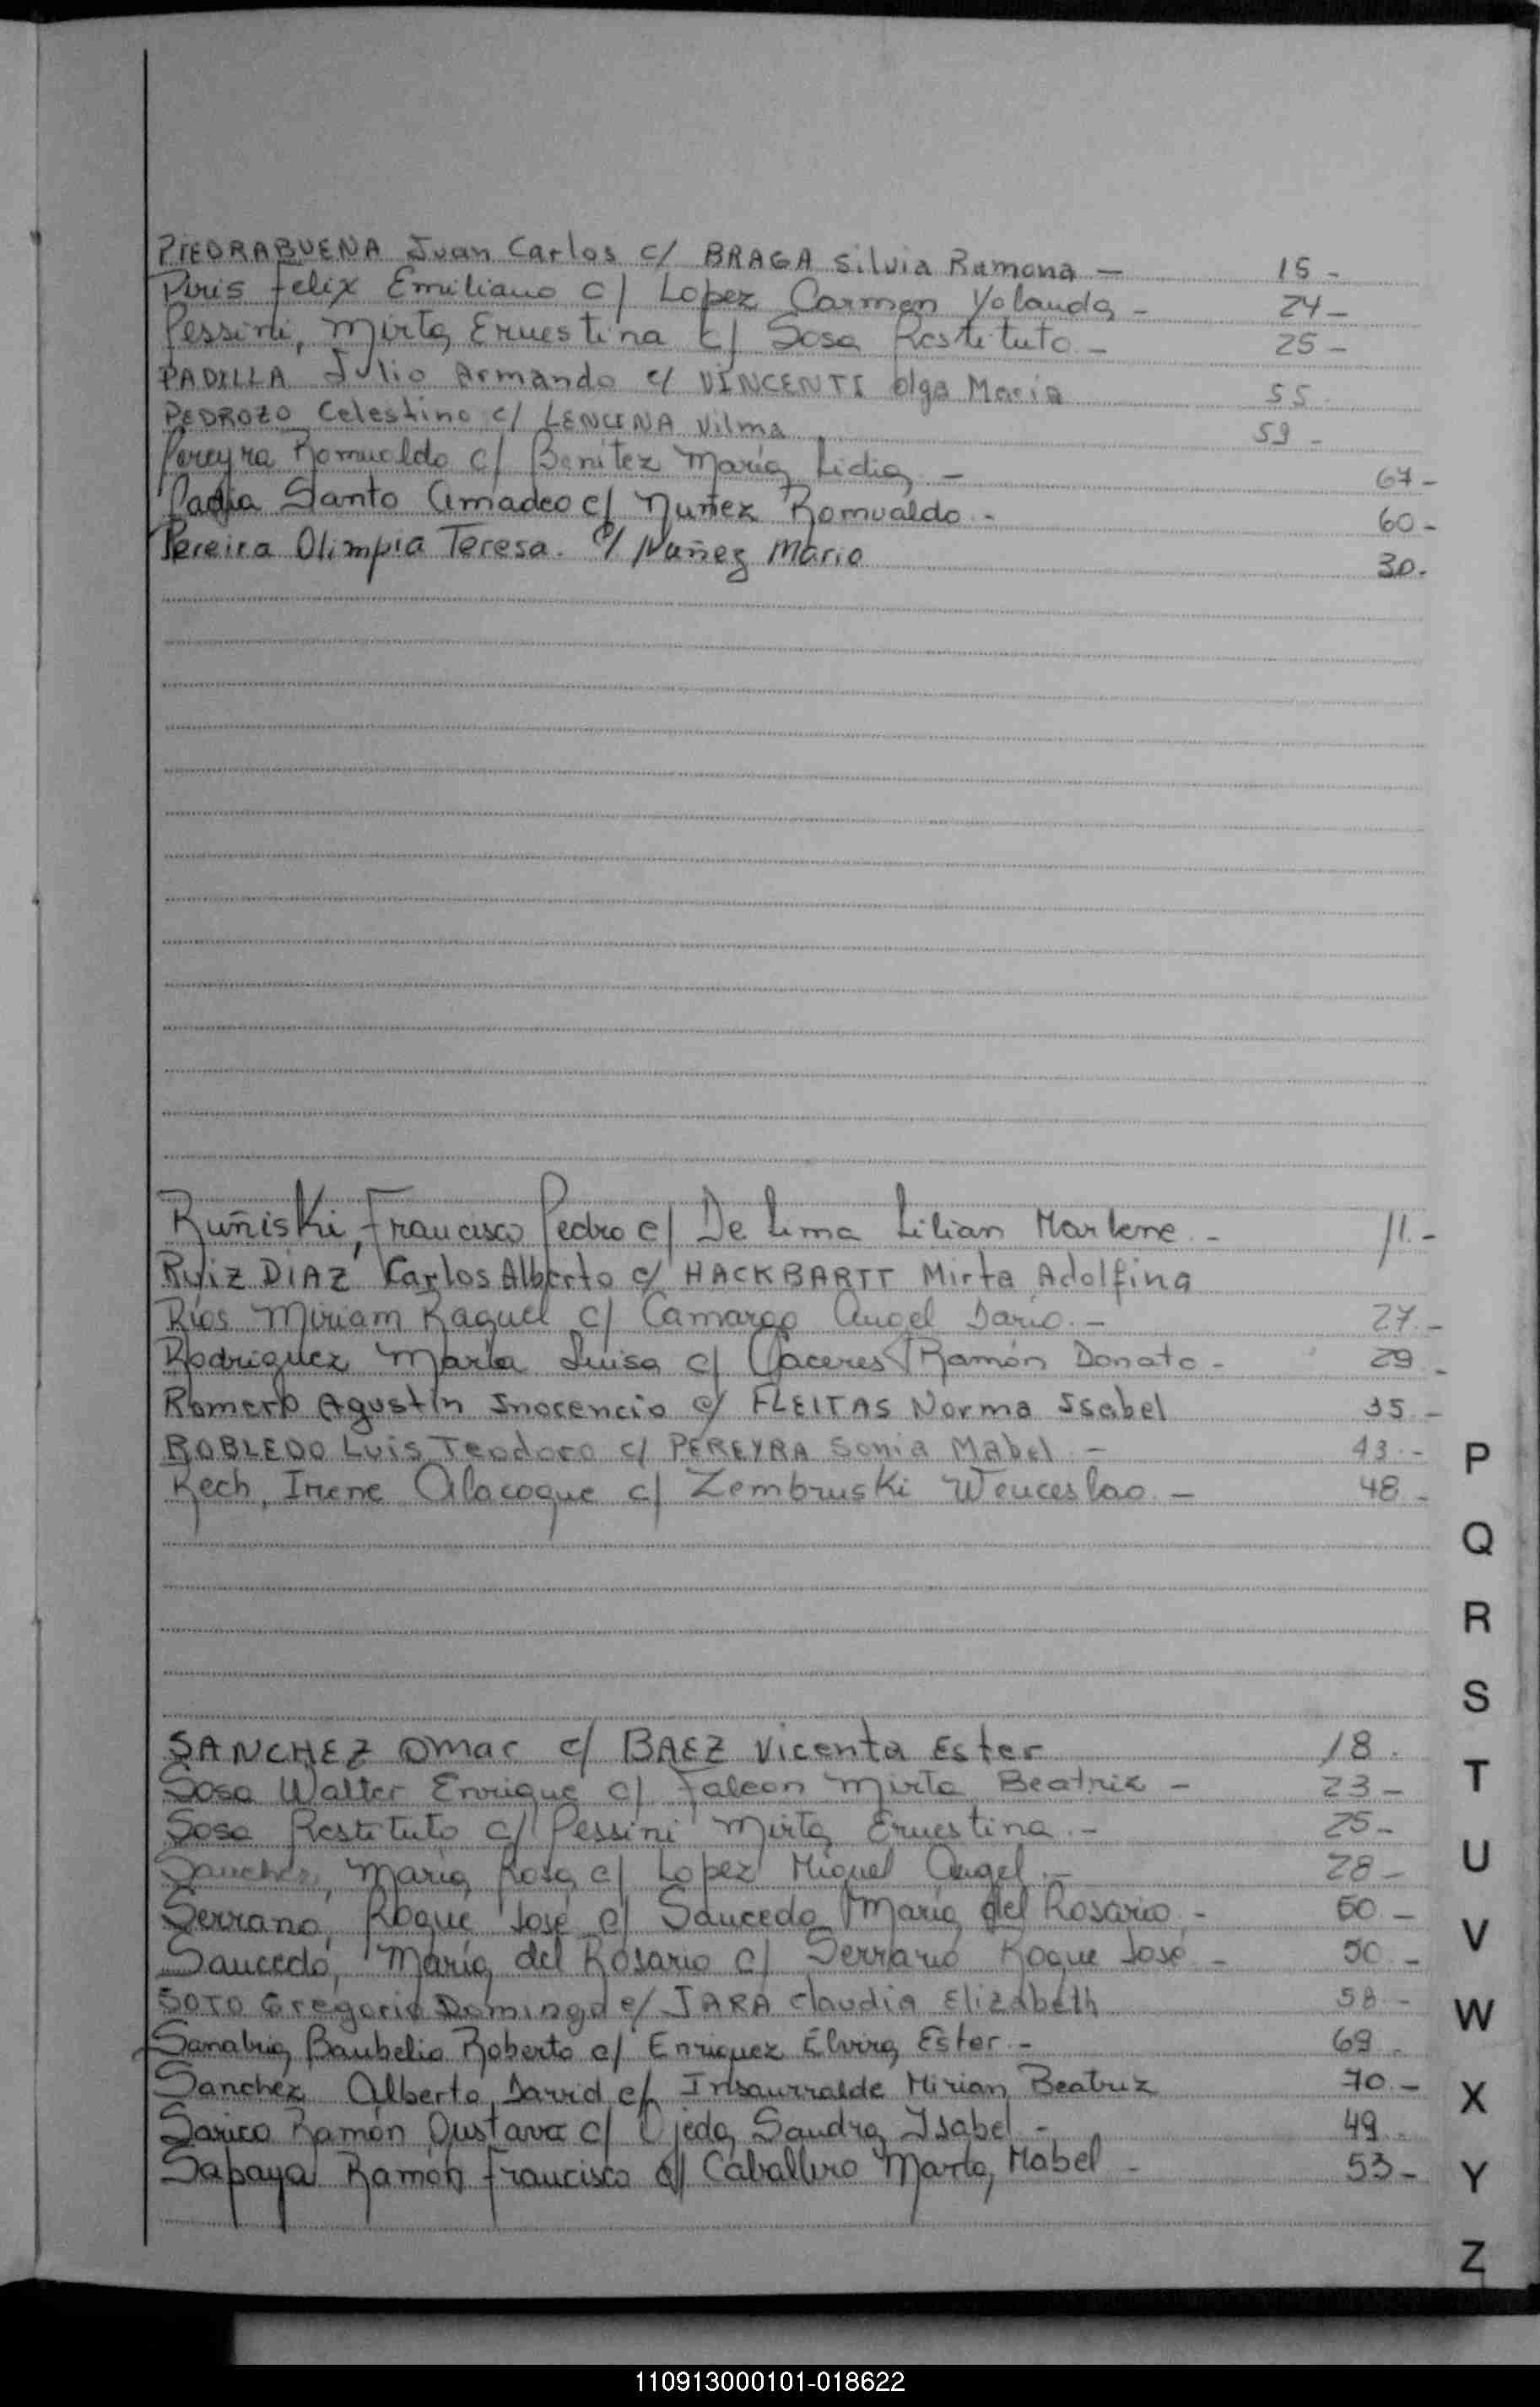 PIEDRABUENA Juan Carlos c/ BRAGA Silvia Ramona — 15 -
Piris Felix Emiliano c/ Lopez Carmen Yolanda - 24 -
Pessini, Mirta Ernestina c/ Sosa Restituto - 25 -
PADILLA Julio Armando c/ VINCENTI Olga Maria 55
PEDROZO Celestino c/ LENCINA Vilma 59 -
Pereyra Romualdo c/ Benitez María Lidia - 67 -
Santo Amadeo c/ Nuñez Romualdo - 60 -
Pereira Olimpia Teresa. c/ Nuñez Mario 30.
Ruñiski, Francisco Pedro c/ De Lima Lilian Marlene. - 11. -
Ruiz DIAZ Carlos Alberto c/ HACKBARTT Mirta Adolfina
Ríos Miriam Raquel c/ Camargo Angel Darío. - 27. -
Rodriguez María Luisa c/ Caceres Ramón Donato - 29 -
Romero Agustín Inocencio c/ FLEITAS Norma Isabel 35. -
ROBLEDO Luis Teodoro c/ PEREYRA Sonia Mabel. - 43. -
Rech, Irene Alacoque c/ Zembruski Wenceslao. - 48 -
P
Q
R
S
T
U
V
W
X
Y
Z
SANCHEZ Omar c/ BAEZ Vicenta Ester 18.
Sosa Walter Enrique c/ Falcon Mirta Beatriz - 23 -
Sosa Restituto c/ Pessini Mirta Ernestina. - 25 -
Sanchez, María Rosa c/ Lopez Miguel Angel. - 28 -
Serrano, Roque José c/ Saucedo María del Rosario - 50. -
Saucedo, María del Rosario c/ Serrano Roque José - 50. -
SOTO Gregorio Domingo c/ JARA Claudia Elizabeth 58 -
Sanabria Baubelio Roberto c/ Enriquez Elvira Ester. - 69.
Sanchez Alberto David c/ Insaurralde Mirian Beatriz 70. -
Sarico Ramón Gustavo c/ Ojeda Sandra Isabel - 49.
Sapaya Ramón Francisco c/ Caballero Marta Mabel - 53 -
110913000101-018622